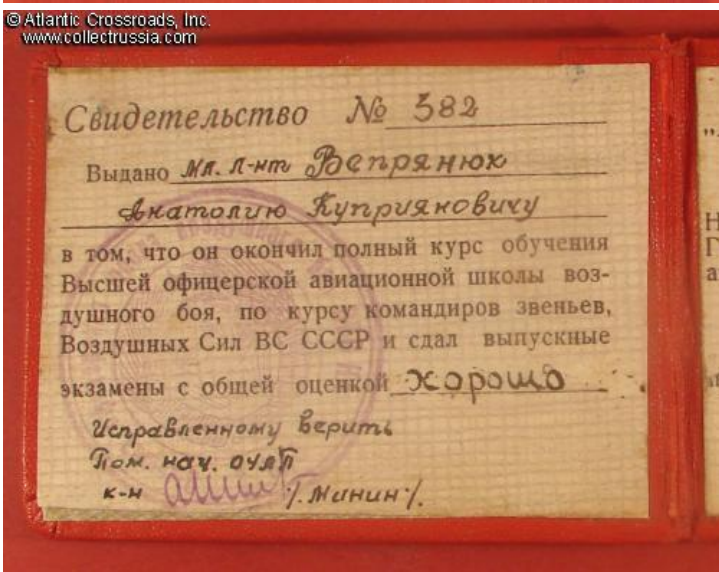 © Atlantic Crossroads, Inc.
www.collectrussia.com
Свидетельство № 382
Выдано Мл. л-нт Вепрянюк
Анатолию Куприяновичу
в том, что он окончил полный курс обучения
Высшей офицерской авиационной школы воз-
душного боя, по курсу командиров звеньев,
Воздушных Сил ВС СССР и сдал выпускные
экзамены с общей оценкой хорошо
Исправленному верить
Пом. нач. ОУЛП
к-н /. Минин ./.